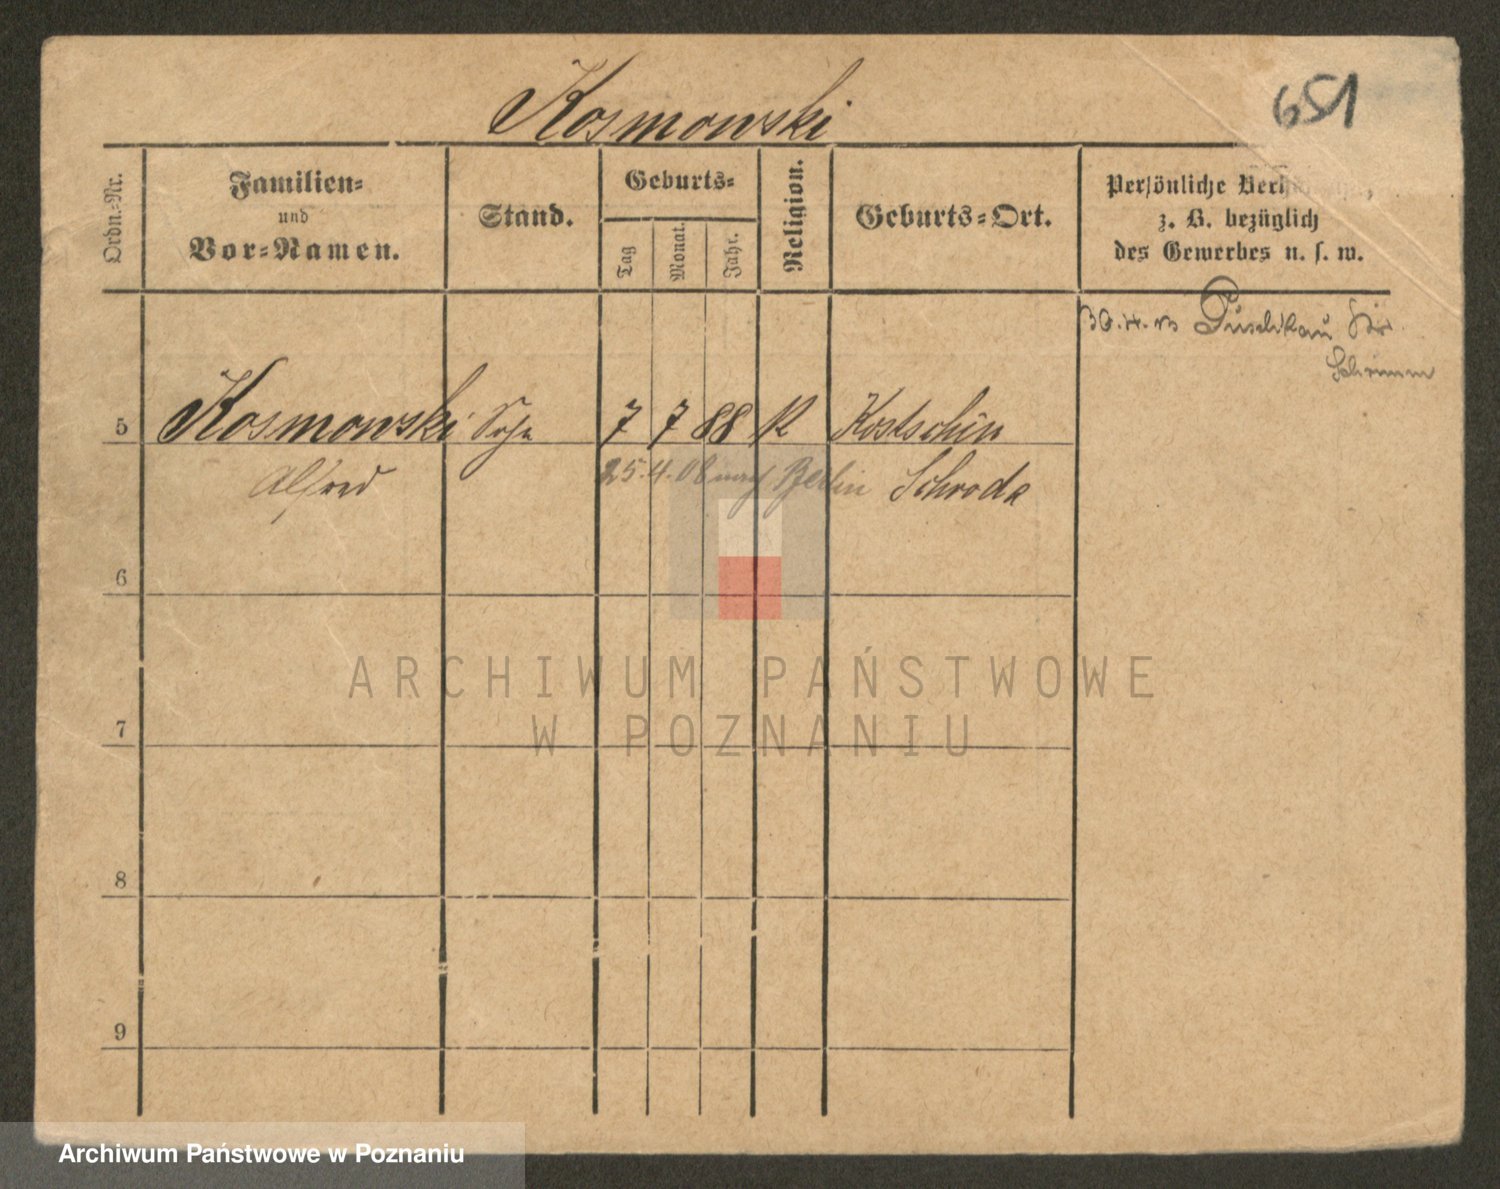 Kosmowski
651
Ordn.-Nr.
Familien-
und
Vor-Namen.
Stand.
Geburts-
Tag
Monat.
Jahr.
Religion.
Geburts-Ort.
Persönliche
z. B. bezüglich
des Gewerbes u. s. w.
30.4.13
Schrimm
5 Kosmowski 7 7 88 K Kostschin
Alfred 25.4.08 nach Berlin Schroda
6
7
8
9
ARCHIWUM PAŃSTWOWE
W POZNANIU
Archiwum Państwowe w Poznaniu